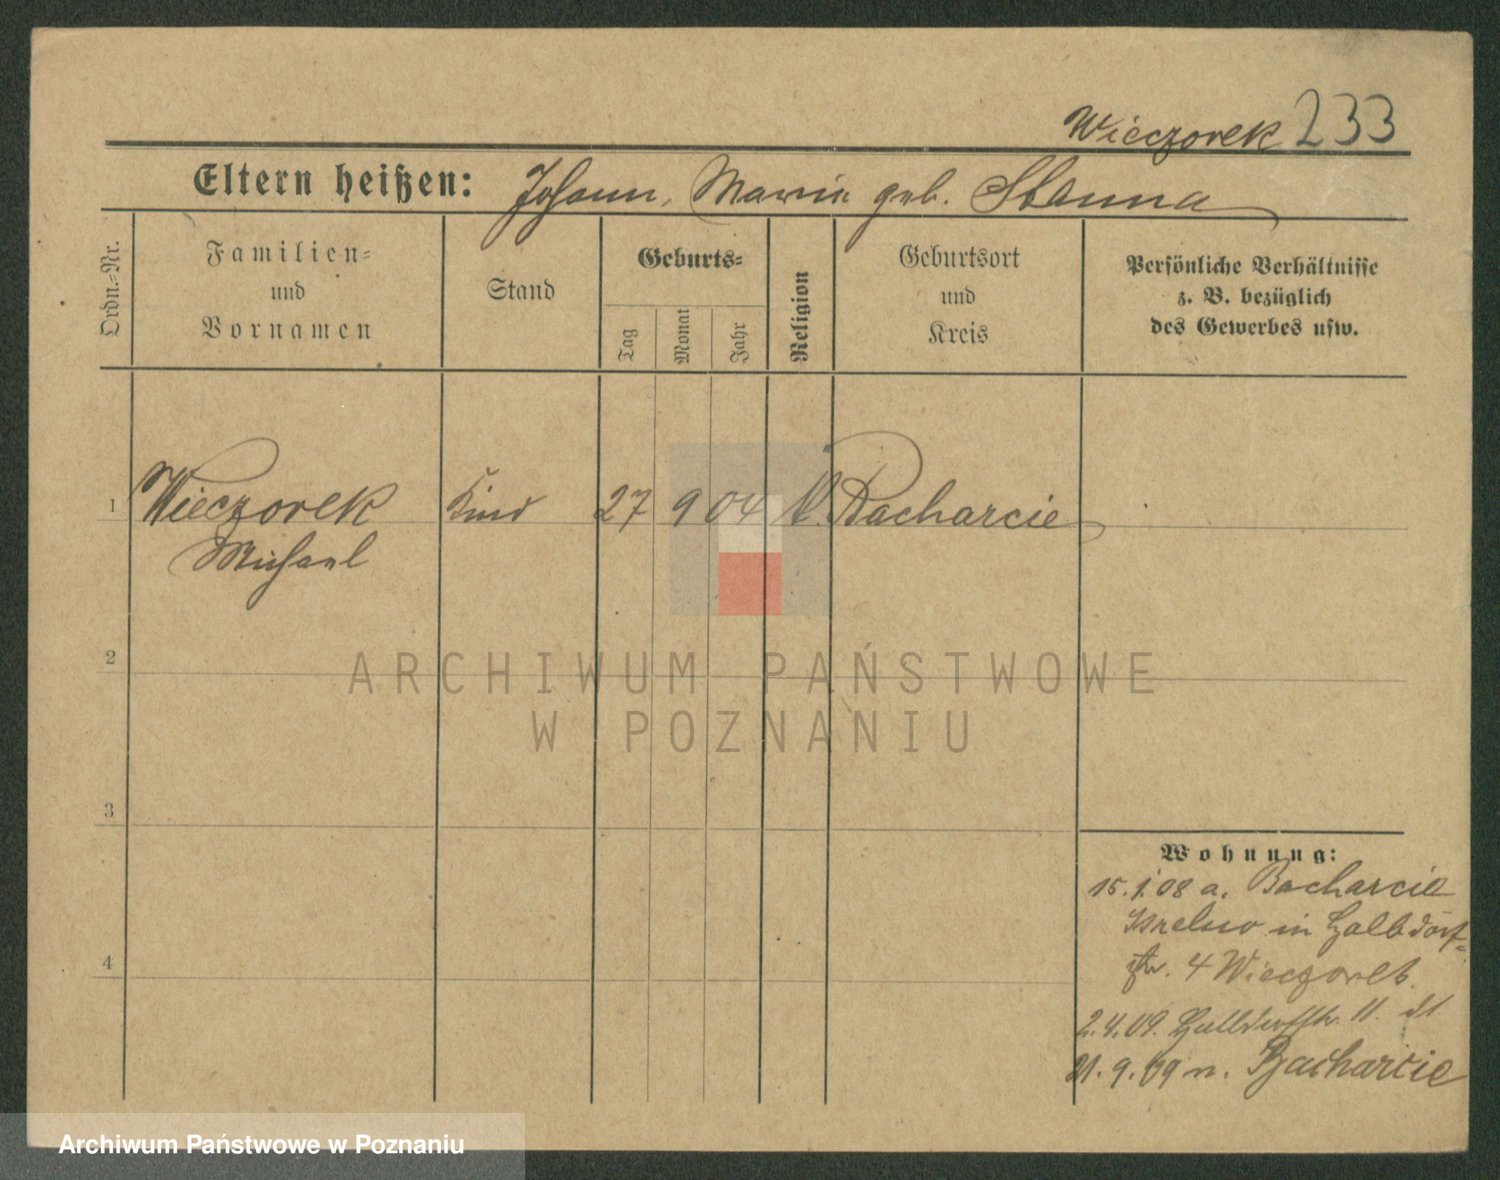 Wieczorek 233
Eltern heißen: Johann, Maria geb. Stanna
Ordn.-Nr.
Familien-
und
Vornamen
Stand
Geburts-
Tag
Monat
Jahr
Religion
Geburtsort
und
Kreis
Persönliche Verhältnisse
z. B. bezüglich
des Gewerbes usw.
1 Wieczorek Kind 27 9 04 k. Bacharcie
Michael
2
3
4
Wohnung:
15.1.08 a. Bacharcie
in Halbdorf-
str. 4 Wieczorek.
2.4.09. Halbdorfstr. 11.
21.9.09 n. Bacharcie
ARCHIWUM PAŃSTWOWE
W POZNANIU
Archiwum Państwowe w Poznaniu